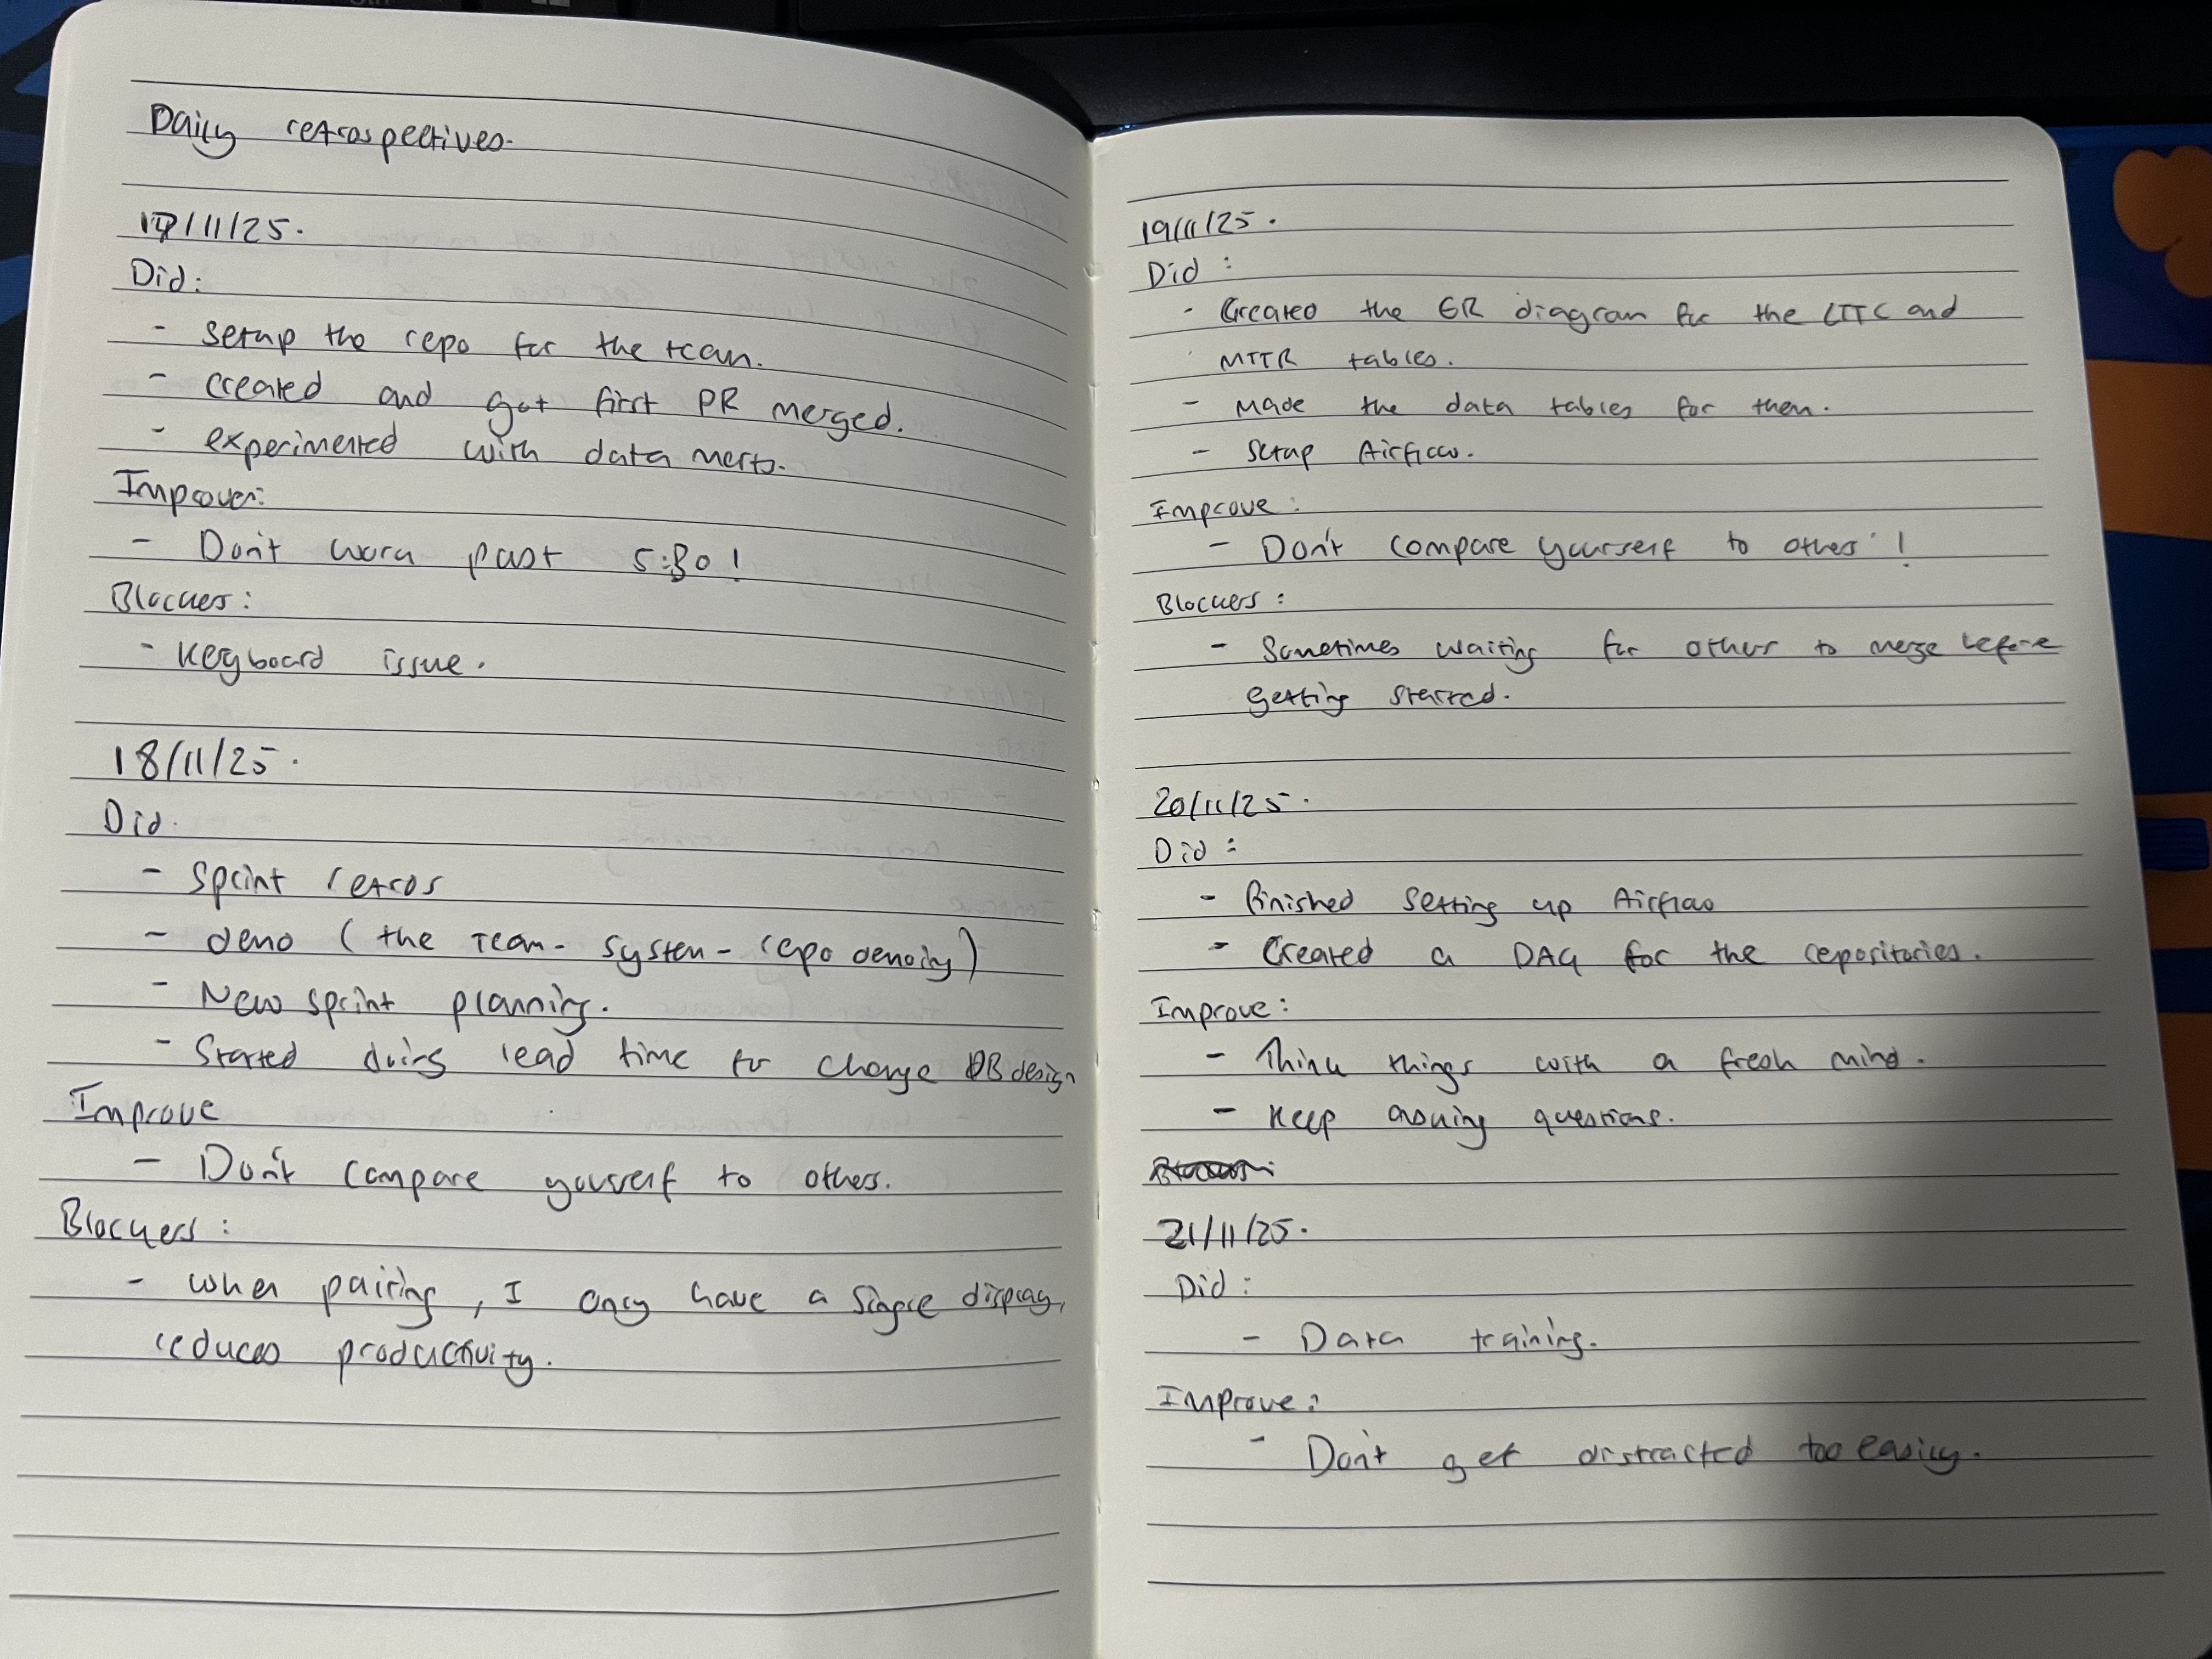 Daily retrospectives.
17/11/25.
Did:
- setup the repo for the team.
- created and got first PR merged.
- experimented with data marts.
Improve:
- Don't work past 5:30!
Blockers:
- Keyboard issue.
18/11/25.
Did.
- Sprint retros
- demo (the team-system-repo demoing)
- New sprint planning.
- Started doing lead time to change DB design
Improve
- Don't compare yourself to others.
Blockers:
- when pairing, I only have a single display,
reduces productivity.
19/11/25.
Did:
- Created the ER diagram for the LTTC and
MTTR tables.
- Made the data tables for them.
- Setup Airflow.
Improve:
- Don't compare yourself to others!
Blockers:
- Sometimes waiting for others to merge before
getting started.
20/11/25.
Did:
- Finished setting up Airflow
- Created a DAG for the repositories.
Improve:
- Think things with a fresh mind.
- Keep asking questions.
21/11/25.
Did:
- Data training.
Improve:
- Don't get distracted too easily.